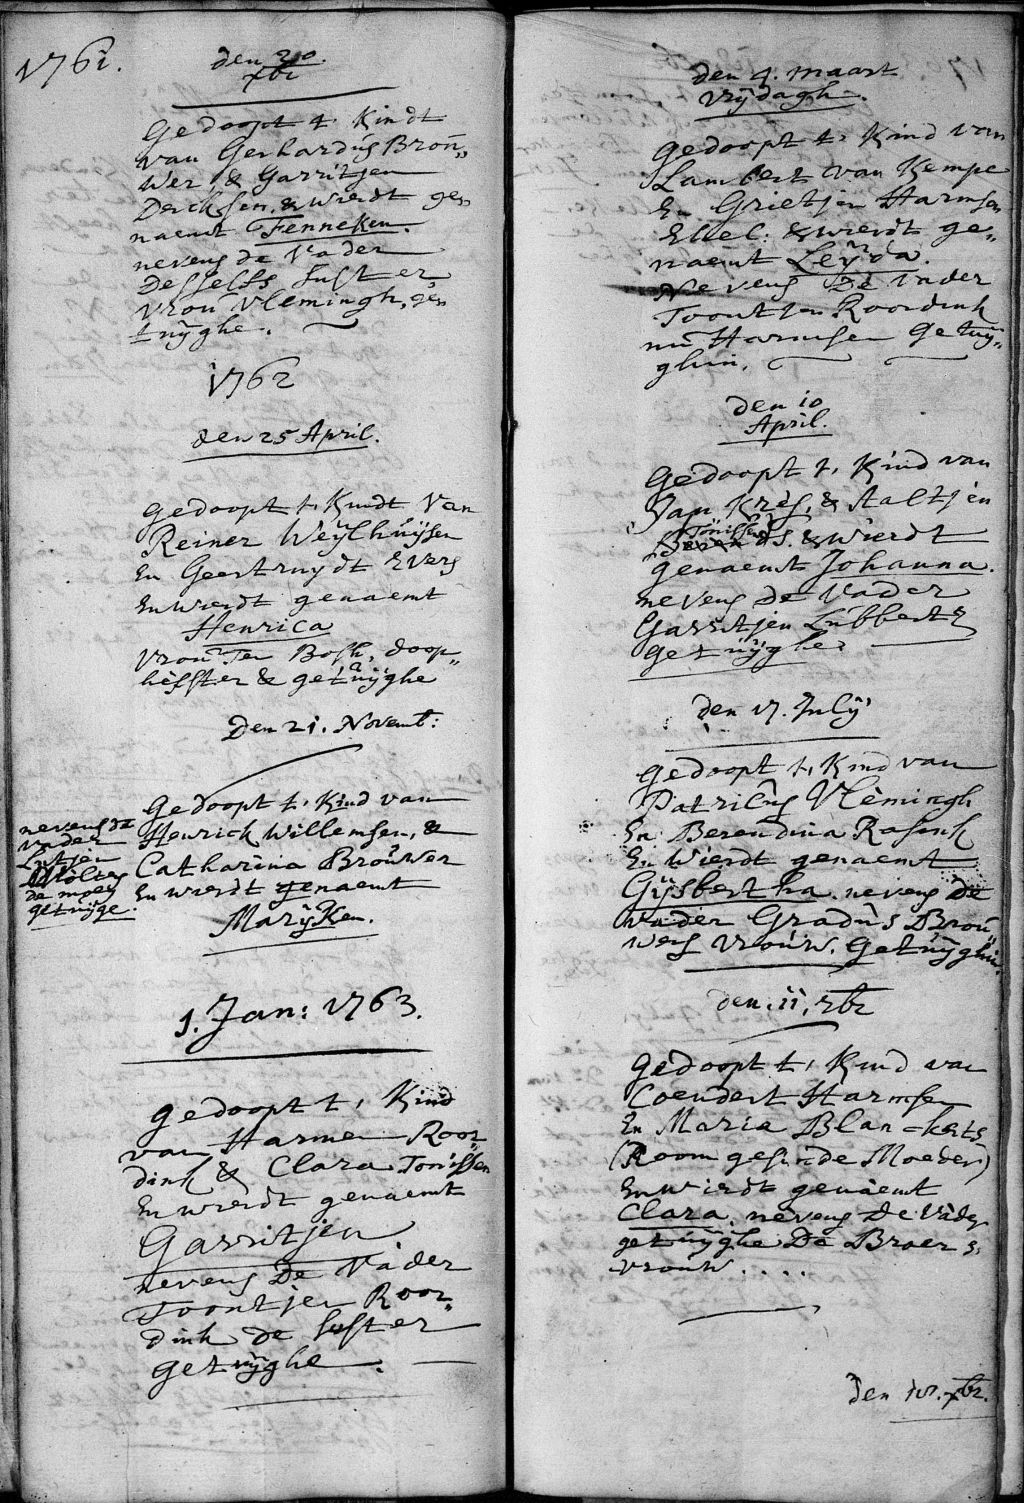 1761.
den 20.
xbr
Gedoopt t. Kindt
van Gerhardús Broú„
wer & Garritjen
Dercksen. & wierdt ge„
naemt Fenneken.
nevens de Vader
desselfs suster,
vrou Vlemingh, ge„
tuÿghe.
1762
den 25 April.
Gedoopt t. Kindt van
Reiner Weÿlhúÿsen
En Geertruydt Evers
En wierdt genaemt
Henrica
vrou Ter Bosh, doop„
hèfster & getúÿghe
Den 21. Novemb:
Gedoopt t, Kind van
Henrick Willemsen, &
Catharina Broúwer
En wierdt genaemt
Marÿken.
nevens de
vader
Lutjen
Wolters
de moeÿ
getuÿge.
1. Jan: 1763.
gedoopt t, Kind
van Harmen Roor„
dink & Clara Tonissen
En wierdt genaemt
Garritjen
nevens De Vader
Toontjen Roor„
dink de suster
getuÿghe.
den 4. maart
vrÿdagh.
gedoopt t, Kind van
Lambert van Kempe
En Grietjen Harmsen
Ehel: & wierdt ge„
naemt Leÿda.
Nevens De Vader
Toontjen Roordink
nu Harmsen Getuÿ„
ghin.
den 10
April.
Gedoopt t, Kind van
Jan Kres, & Aaltjen
Tönissen
Berends. & wierdt
genaemt Johanna.
nevens de Vader
Garritjen Lubberts
getuÿghe.
den 17. Julÿ
gedoopt t, Kind van
Patricús Vlemingh
En Berendina Rasink
En wierdt genaemt
Gÿsbertha nevens De
vader Gradús Broú„
wers vroúw. Getuÿghin.
den. 11. xbr
gedoopt t, Kind van
Coendert Harmsen
En Maria Blan-kerts
(Room gesinde Moeder)
En wierdt genaemt
Clara, nevens de Vader
getuÿghe De Broer s.
vrouw....
den 18. xbr.